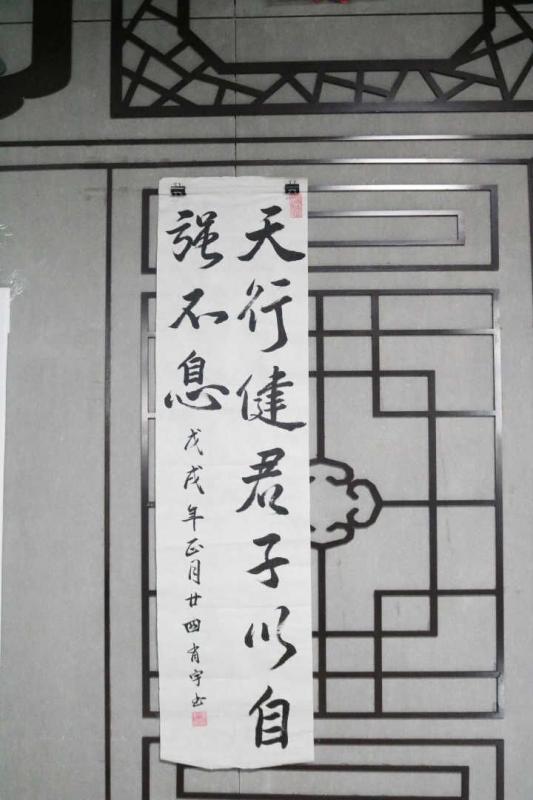 天行健君子以自
强不息
戊戌年正月廿四肖宇书